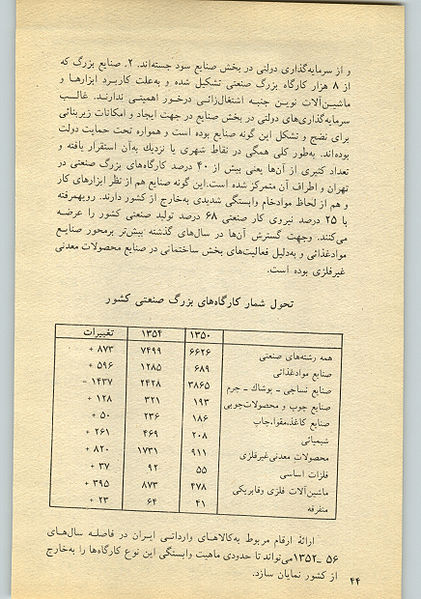 و از سرمایه‌گذاری دولتی در بخش صنایع سود جسته‌اند. ۲ـ صنایع بزرگ که
از ۸ هزار کارگاه بزرگ صنعتی تشکیل شده و به‌علت کاربرد ابزارها و
ماشین‌آلات نوین جنبه اشتغال‌زائی درخور اهمیتی ندارند. غالب
سرمایه‌گذاری‌های دولتی در بخش صنایع در جهت ایجاد و امکانات زیربنائی
برای نضج و تشکل این گونه صنایع بوده است و همواره تحت حمایت دولت
بوده‌اند. به‌طور کلی همگی در نقاط شهری یا نزدیك به‌آن استقرار یافته و
تعداد کثیری از آن‌ها یعنی بیش از ۴۰ درصد کارگاه‌های بزرگ صنعتی در
تهران و اطراف آن متمرکز شده است.این گونه صنایع هم از نظر ابزارهای کار
و هم از لحاظ موادخام وابستگی شدیدی به‌خارج از کشور دارند. رویهمرفته
با ۲۵ درصد نیروی کار صنعتی ۶۸ درصد تولید صنعتی کشور را عرضه
می‌کنند. وجهت گسترش آن‌ها در سال‌های گذشته بیش‌تر برمحور صنایع
موادغذائی و به‌دلیل فعالیت‌های بخش ساختمانی در صنایع محصولات معدنی
غیرفلزی بوده است.
تحول شمار کارگاه‌های بزرگ صنعتی کشور
۱۳۵۰ ۱۳۵۴ تغییرات
همه رشته‌های صنعتی ۶۶۲۶ ۷۴۹۹ ۸۷۳ +
صنایع موادغذائی ۶۸۹ ۱۲۸۵ ۵۹۶ +
صنایع نساجی ـ پوشاك ـ چرم ۳۸۶۵ ۲۴۲۸ ۱۴۳۷ −
صنایع چوب و محصولات‌چوبی ۱۹۳ ۳۲۱ ۱۲۸ +
صنایع کاغذ،مقوا،چاپ ۱۸۶ ۲۳۶ ۵۰ +
شیمیائی ۲۰۸ ۴۶۹ ۲۶۱ +
محصولات معدنی‌غیرفلزی ۹۱۱ ۱۷۳۱ ۸۲۰ +
فلزات اساسی ۵۵ ۹۲ ۳۷ +
ماشین‌آلات فلزی وفابریکی ۴۷۸ ۸۷۳ ۳۹۵ +
متفرقه ۴۱ ۶۴ ۲۳ +
ارائهٔ ارقام مربوط به‌کالاهای وارداتی ایران در فاصله سال‌های
۵۶ ـ۱۳۵۲می‌تواند تا حدودی ماهیت وابستگی این نوع کارگاه‌ها را به‌خارج
از کشور نمایان سازد.
۴۴